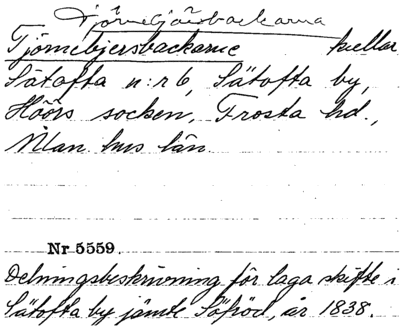 Tjörnebjersbackarna
Tjörnebjersbackarne kullar
Sätofta n:r 6, Sätofta by,
Höörs socken, Frosta hd.,
Malmöhus län
Nr 5559.
Delningsbeskrivning för laga skifte i
Sätofta by jämte år 1838.